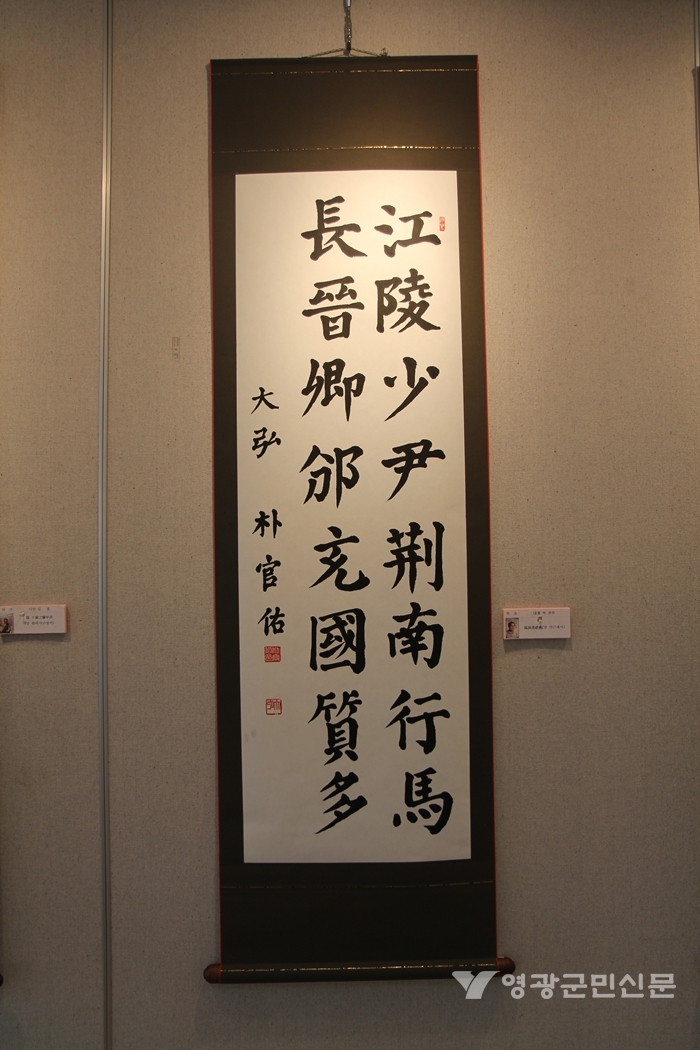 江陵少尹荆南行馬
長晉卿邠兖國質多
大弘 朴官佑
영광군민신문